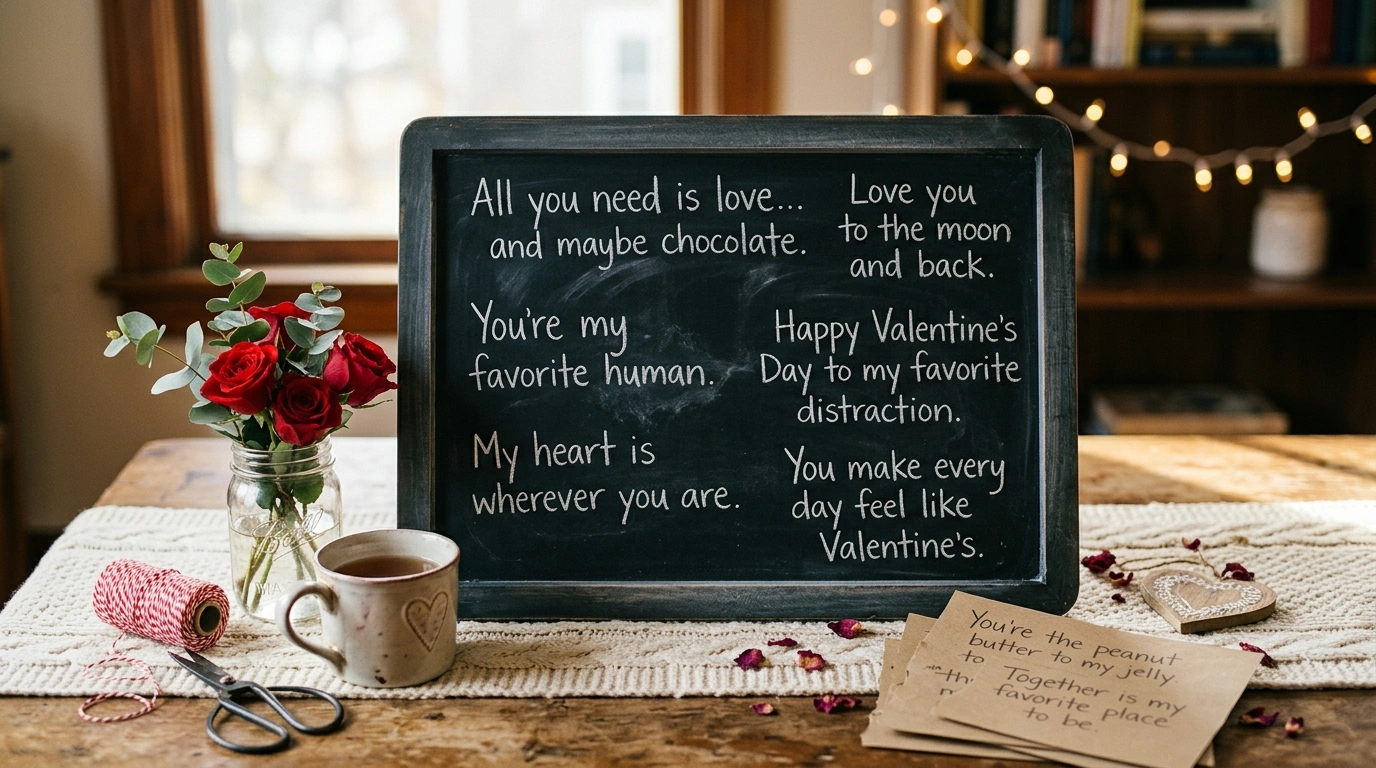 All you need is love...
and maybe chocolate.
Love you
to the moon
and back.
You're my
favorite human.
Happy Valentine's
Day to my favorite
distraction.
My heart is
wherever you are.
You make every
day feel like
Valentine's.
You're the peanut
butter to my jelly
to
Together is my
favorite place
to be.